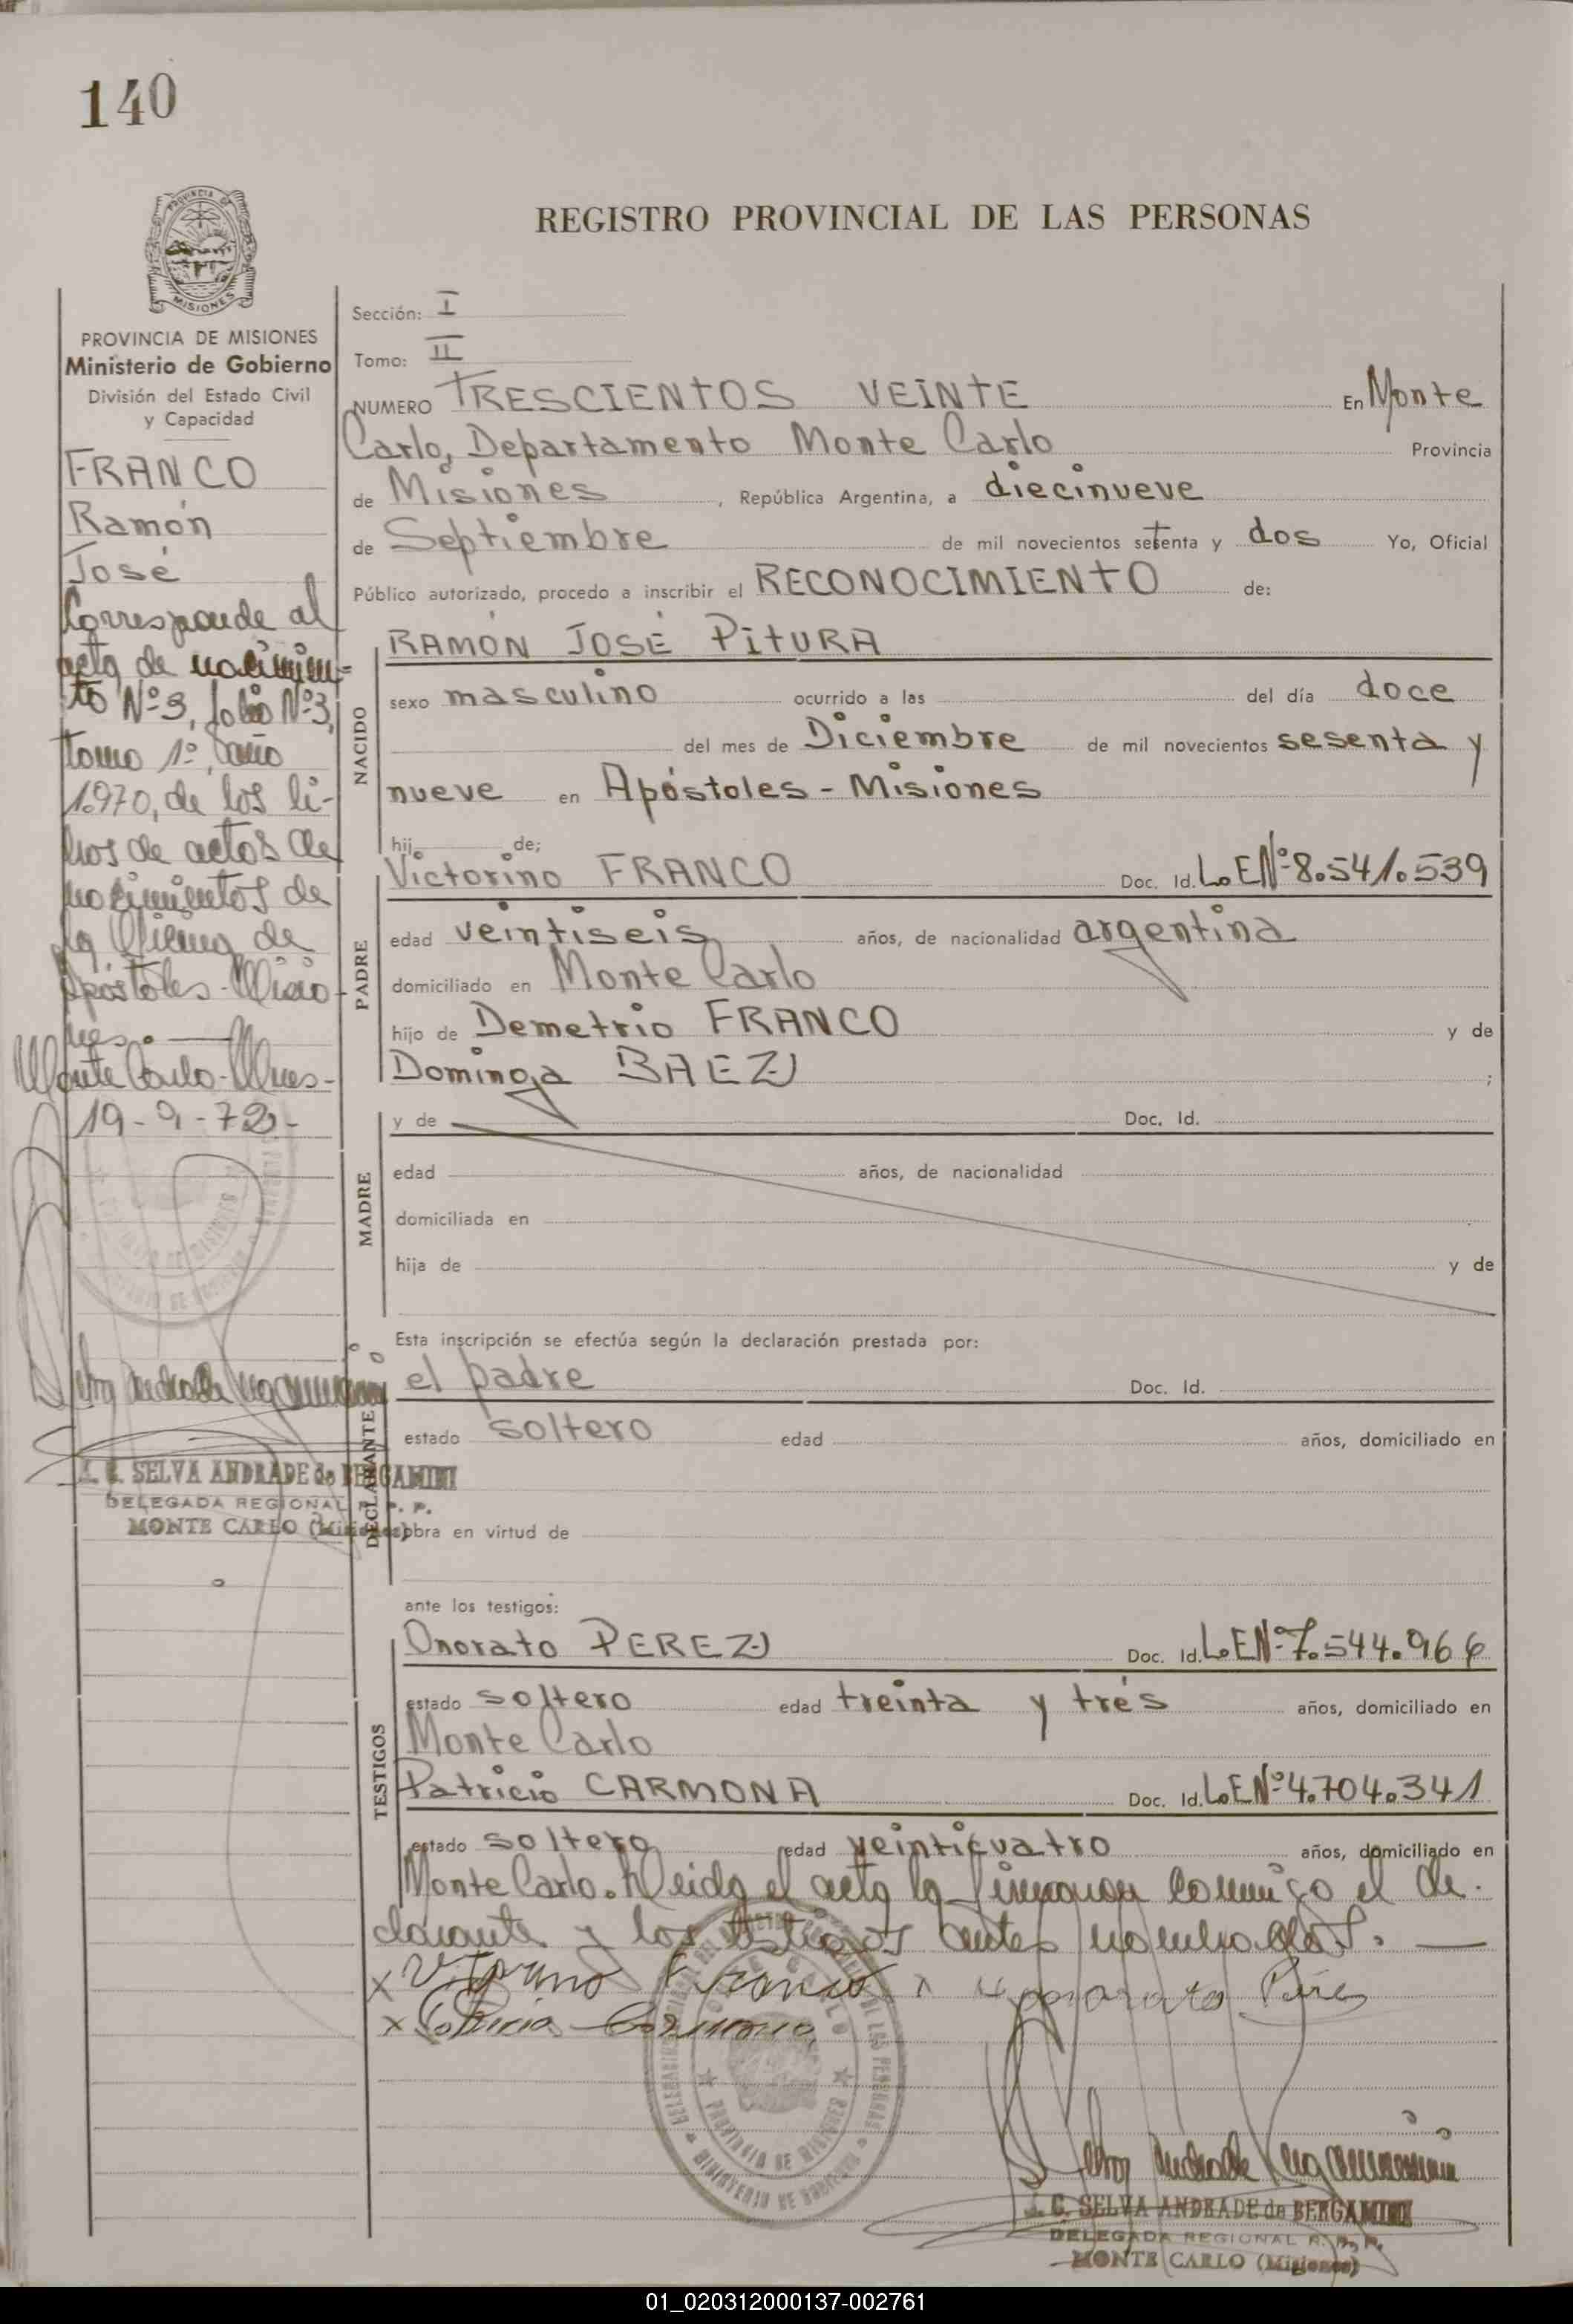 140
REGISTRO PROVINCIAL DE LAS PERSONAS
PROVINCIA DE MISIONES
Ministerio de Gobierno
División del Estado Civil
y Capacidad
FRANCO
Ramón
José
Corresponde al
acta de nacimien=
to Nº3, folio Nº3,
tomo 1º, año
1.970, de los li-
bros de actas de
nacimientos de
la Oficina de
Apóstoles-Misio-
nes.
Monte Carlo-Mnes-
19-9-72-
S. C. SELVA ANDRADE de BERGAMINI
DELEGADA REGIONAL R. P. P.
MONTE CARLO (Misiones)
Sección: I
Tomo: II
NUMERO TRESCIENTOS VEINTE En Monte
Carlo, Departamento Monte Carlo Provincia
de Misiones, República Argentina, a diecinueve
de Septiembre de mil novecientos setenta y dos Yo, Oficial
Público autorizado, procedo a inscribir el RECONOCIMIENTO de:
NACIDO
RAMÓN JOSÉ PITURA
sexo masculino ocurrido a las del día doce
del mes de Diciembre de mil novecientos sesenta y
nueve en Apóstoles - Misiones
hij de;
PADRE
Victorino FRANCO Doc. Id. L.E.Nº8.541.539
edad veintiseis años, de nacionalidad argentina
domiciliado en Monte Carlo
hijo de Demetrio FRANCO y de
Dominga BAEZ ;
MADRE
y de Doc. Id.
edad años, de nacionalidad
domiciliada en
hija de y de
DECLARANTE
Esta inscripción se efectúa según la declaración prestada por:
el padre Doc. Id.
estado soltero edad años, domiciliado en
obra en virtud de
TESTIGOS
ante los testigos:
Onorato PEREZ Doc. Id. L.E.Nº7.544.966
estado soltero edad treinta y trés años, domiciliado en
Monte Carlo
Patricio CARMONA Doc. Id. L.E.Nº4.704.341
estado soltero edad veinticuatro años, domiciliado en
Monte Carlo. Leida el acta la firman conmigo el de-
clarante y los testigos antes nombrados.
x Vitorino Franco x Onorato Pires
x Patricio Carmona
PROVINCIA DE MISIONES
MINISTERIO DE GOBIERNO
S. C. SELVA ANDRADE de BERGAMINI
DELEGADA REGIONAL R. P. P.
MONTE CARLO (Misiones)
01_020312000137-002761